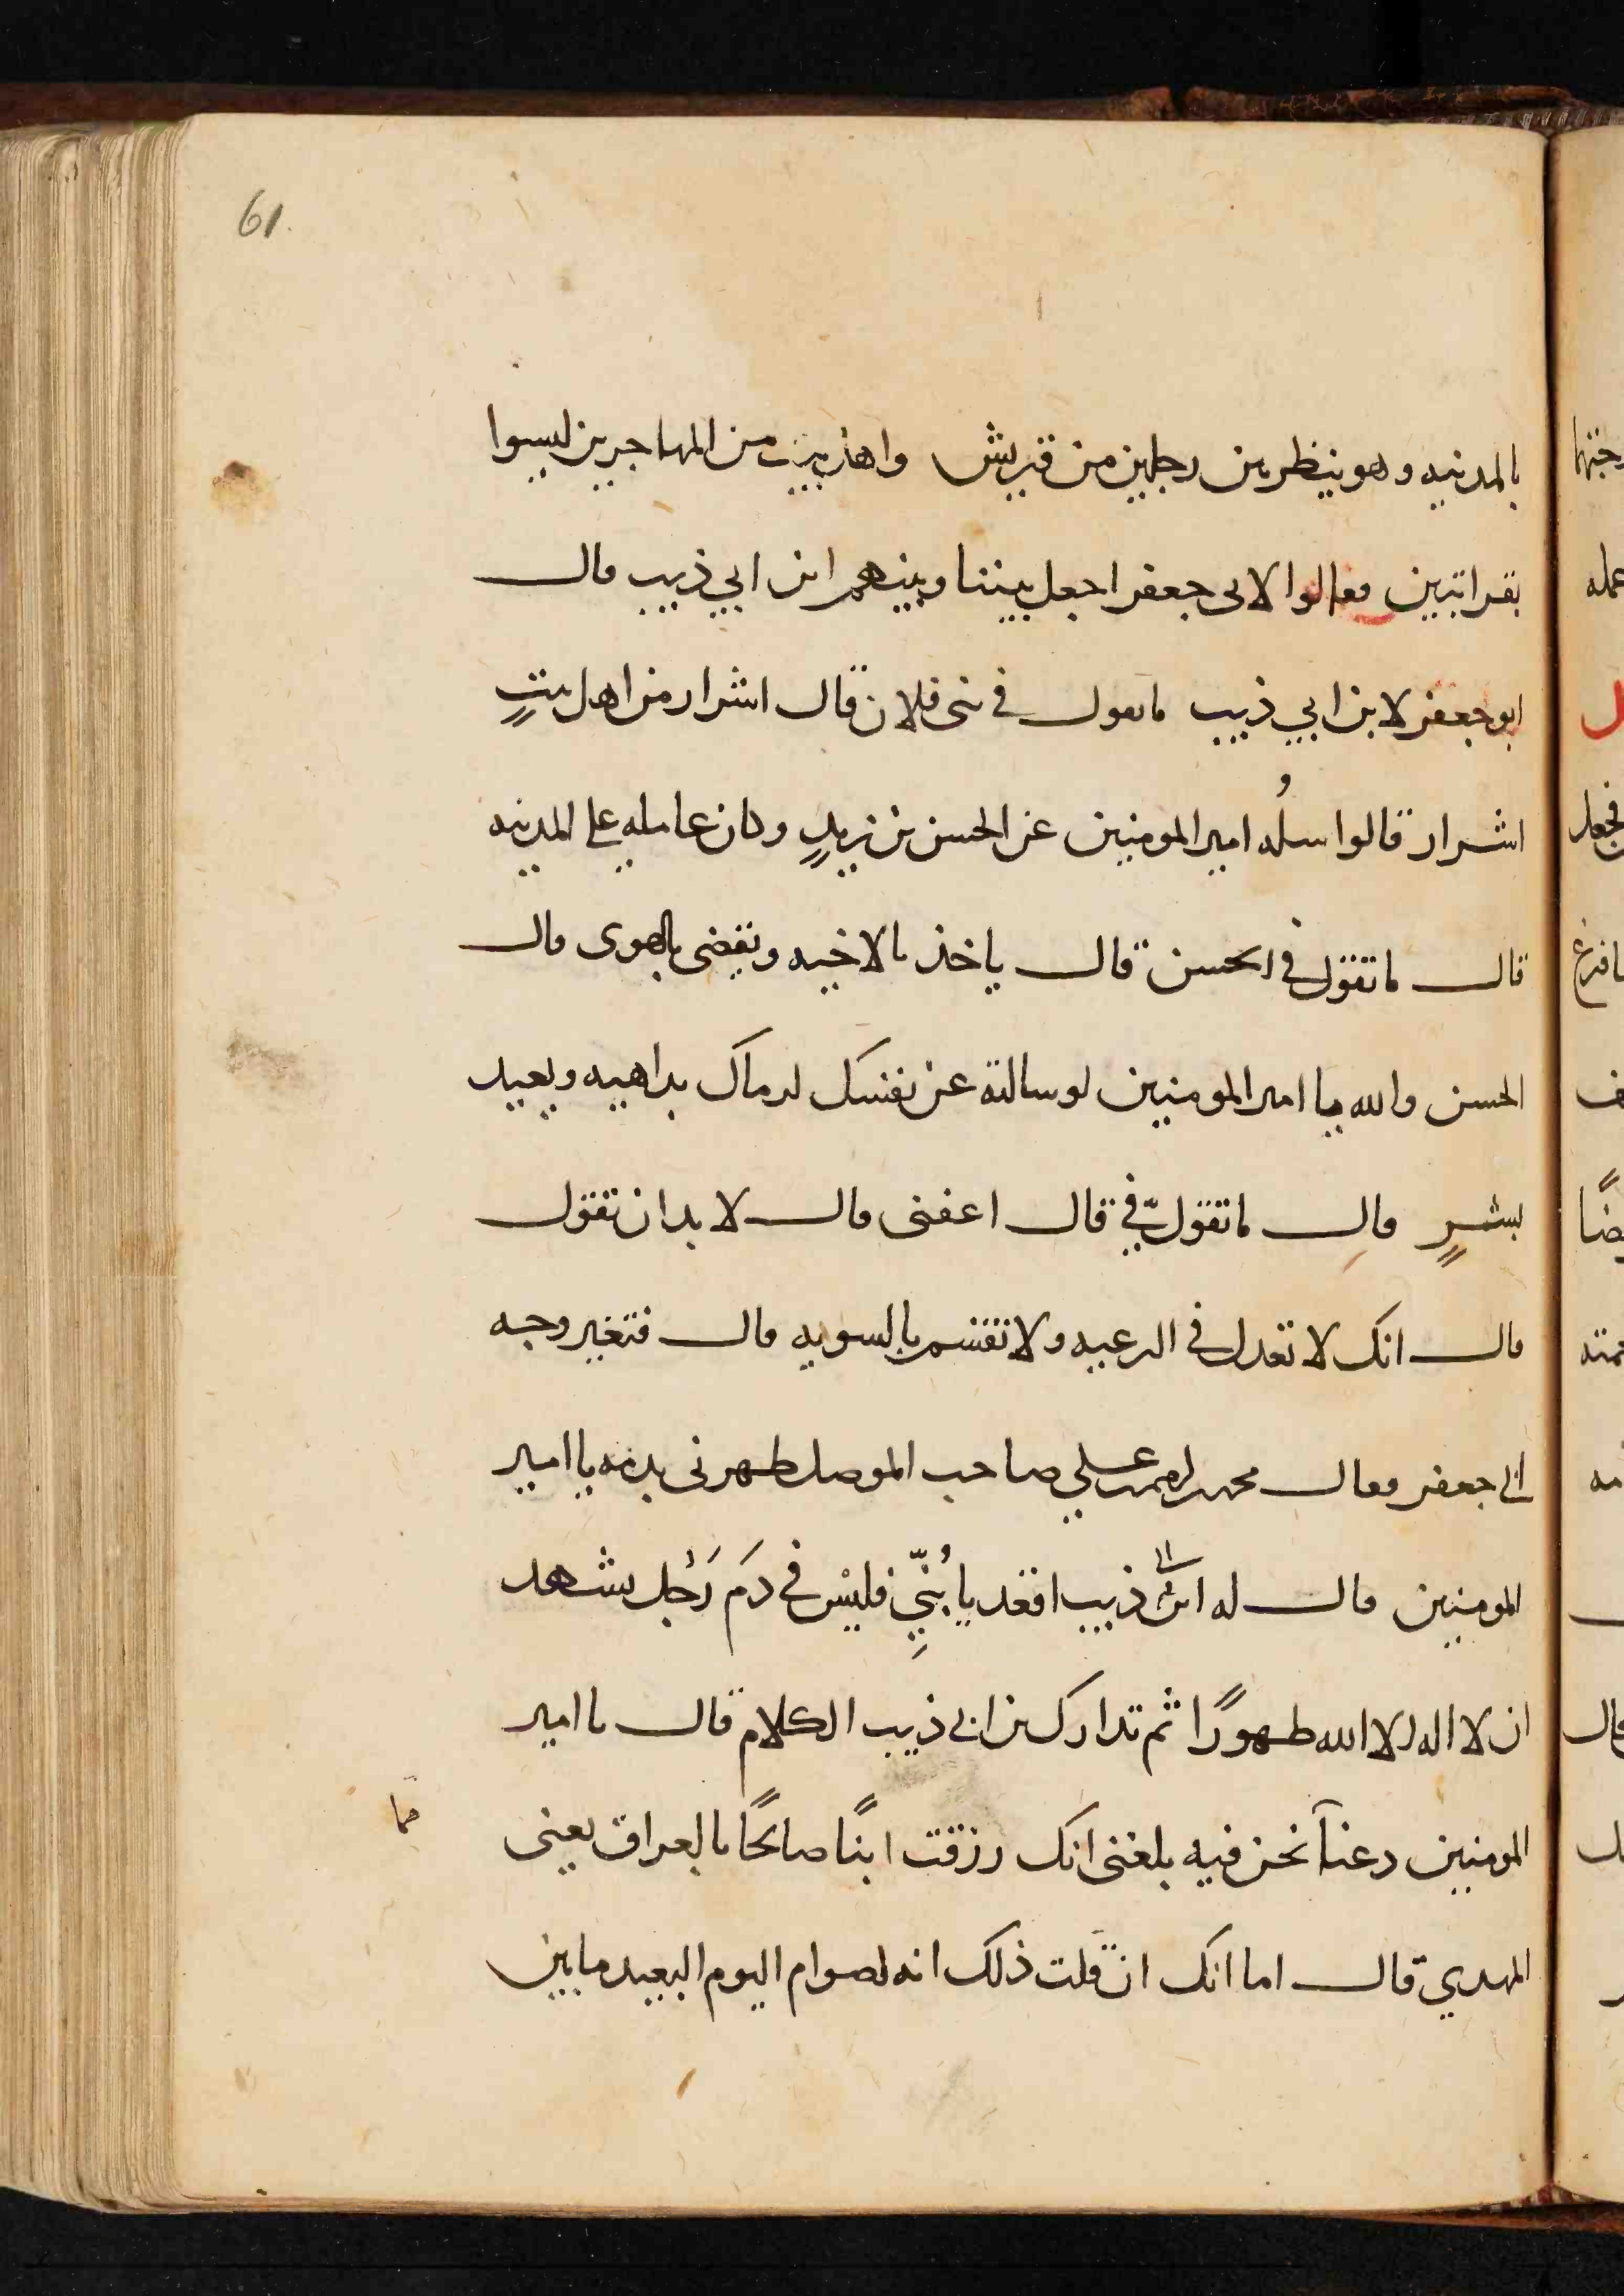 61.
بالمدينه وهو ينظر بين رجلين من قريش واهل بيت من المهاجرين ليسوا
بقراتبين فقالوا لابى جعفر اجعل بيننا وبينهم ابن ابي ذيب قال
ابو جعفر لابن ابي ذيب ما تقول في بنى فلان قال اشرار من اهل بيتٍ
اشرار قالوا سلُه امير المومنين عن الحسن بن زيدٍ وكان عامله على المدينه
قال ما تقول في الحسن قال ياخذ بالاخيه ويقضى بالهوى قال
الحسن والله يا امير المومنين لو سالته عن نفسك لرماك بداهيه ويعيد
بشرٍ قال ما تقول فيّ قال اعفنى قال لا بد ان تقول
قال انك لا تعدل في الرعيه ولا تقسم بالسويه قال فتغير وجه
ابى جعفر فقال صاحب الموصل طهرنى بدمه يا امير
المومنين قال له ابن ابى ذيب اقعد يا بُنيّ فليس في دَم رَجُل يشهد
ان لا اله الا الله طهورًا ثم تدارك بن ابى ذيب الكلام قال يا امير
المومنين دعنا نحن فيه بلغنى انك رزقت ابنًا صالحًا بالعراق يعنى
مما
المهدي قال اما انك ان قلت ذلك انه لصوام اليوم البعيد ما بين